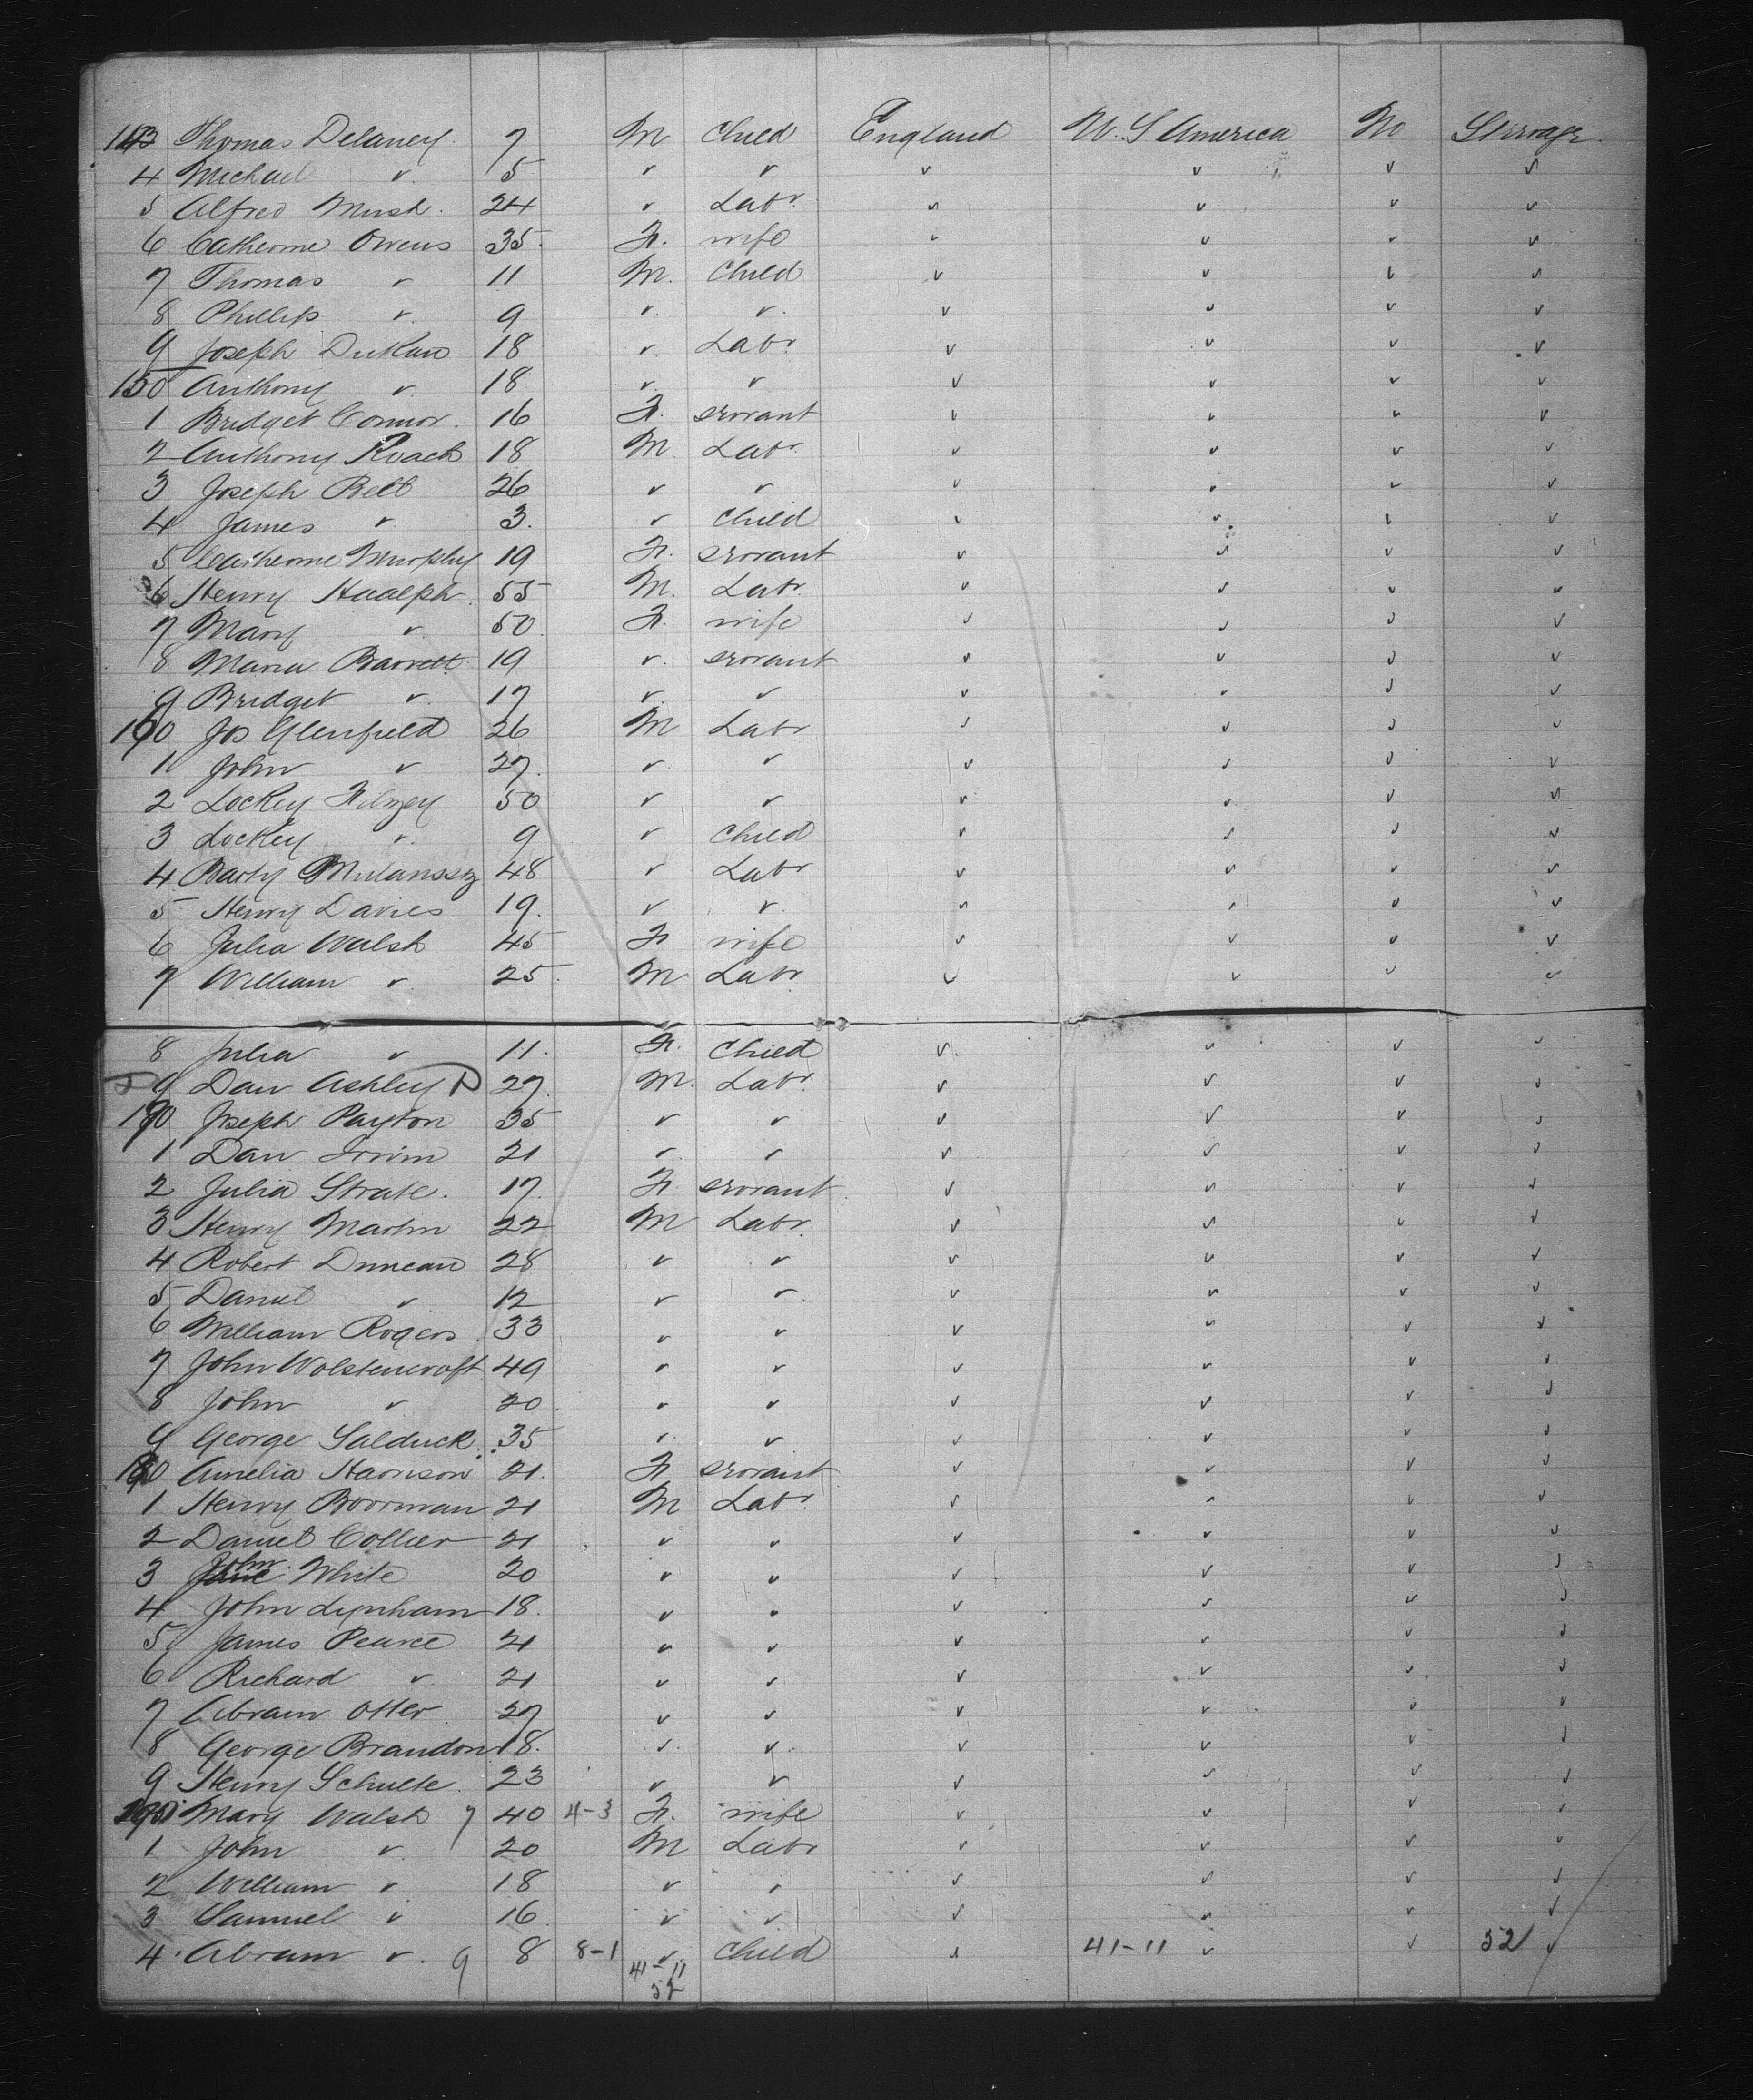 143 Thomas Delaney 7 M Child England U. S America No Steerage
4 Michael " 5 " " " " " "
5 Alfred Mush. 24 " Labr " " " "
6 Catherine Owens 35 F. wife " " " "
7 Thomas " 11 M. Child " " " "
8 Phillip " 9 " " " " " "
9 Joseph 18 " Labr " " " "
150 Anthony " 18 " " " " " "
1 Bridget Connor. 16 F. servant " " " "
2 Anthony Roach 18 M. Labr " " " "
3 Joseph Bell 26 " " " " " "
4 James " 3. " Child " " " "
5 Catherine Murphy 19 F. servant " " " "
6 Henry 55 M. Labr. " " " "
7 Mary " 50 F. wife " " " "
8 Maria Barrett 19 " servant " " " "
9 Bridget " 17 " " " " " "
160 Jos Glenfield 26 M Labr " " " "
1 John " 27. " " " " " "
2 Lockey 50 " " " " " "
3 Lockey " 9 " Child " " " "
4 48 " Labr " " " "
5 Henry Davies 19. " " " " " "
6 Julia Walsh 45 F wife " " " "
7 William " 25. M Labr " " " "
8 Julia " 11. F. Child " " " "
9 Dan Ashley 27. M. Labr. " " " "
170 Joseph Payton 35 " " " " " "
1 Dan Irwin 21 " " " " " "
2 Julia 17. F. servant " " " "
3 Henry Martin 22 M Labr. " " " "
4 Robert Duncan 28 " " " " " "
5 Daniel " 12 " " " " " "
6 William Rogers 33 " " " " " "
7 John Wolstencroft 49 " " " " " "
8 John " 20 " " " " " "
9 George Salduck. 35 " " " " " "
180 Amelia Harrison 21. F. servant " " " "
1 Henry Boorman 21 M Labr. " " " "
2 Daniel Collier 21 " " " " " "
3 John White 20 " " " " " "
4 John Lynham 18. " " " " " "
5 James Pearce 21 " " " " " "
6 Richard " 21 " " " " " "
7 Abram Otter 27 " " " " " "
8 George Brandon 18. " " " " " "
9 Henry Schulte. 23 " " " " " "
190 Mary Walsh 7 40 4-3 F. wife " " " "
1 John " 20 M Labr " " " "
2 William " 18 " " " " " "
3 Samuel " 16 " " " " " "
4 Abram " 9 8 8-1 " Child " 41-11 " " 52 "
41-11
52